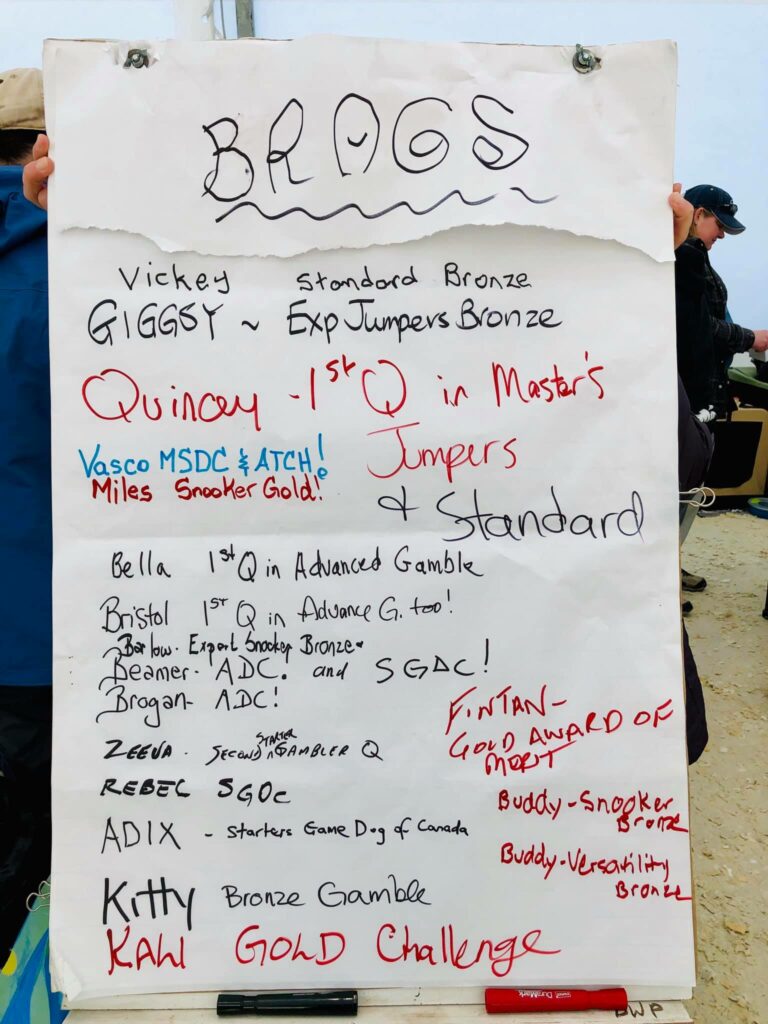 BRAGS
Vickey Standard Bronze
GIGGSY ~ Exp Jumpers Bronze
Quincey - 1st Q in Master's
Jumpers
& Standard
Vasco MSDC & ATCH!
Miles Snooker Gold!
Bella 1st Q in Advanced Gamble
Bristol 1ST Q in Advance G. too!
Barlow. Expert Snooker Bronze
Beamer- ADC. and SGDC!
Brogan- ADC!
FINTAN-
GOLD AWARD OF
MERIT
ZEEVA - SECOND STARTER GAMBLER Q
REBEL SGDC
Buddy-Snooker
Bronze
ADIX - Starters Game Dog of Canada
Buddy-Versatility
Bronze
Kitty Bronze Gamble
GOLD Challenge
DuraMark
BWP